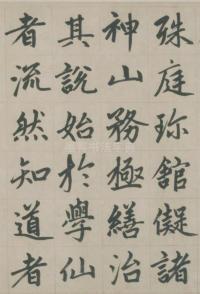 殊庭珎館儗諸
神山務極繕治
其說始於學仙
者流然知道者